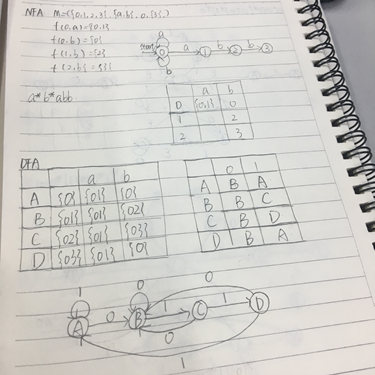 NFA M=({0,1,2,3},{a,b},0,{3},)
f(0,a)={0,1}
f(0,b)={0}
f(1,b)={2}
f(2,b)={3}
a
start 0 a 1 b 2 b 3
b
a*b*abb
a b
0 {0,1} 0
1 2
2 3
DFA
a b
A {0} {01} {0}
B {01} {01} {02}
C {02} {01} {03}
D {03} {01} {0}
0 1
A B A
B B C
C B D
D B A
1 0 0
A 0 B 1 C 1 D
0
1